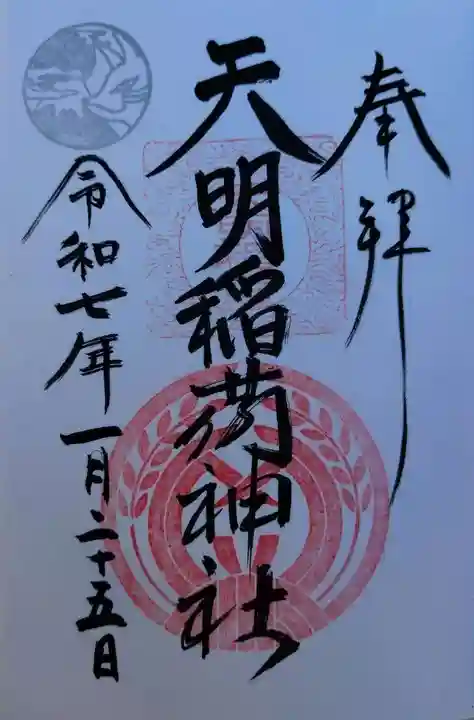 奉拝
天明稲荷神社
令和七年一月二十五日